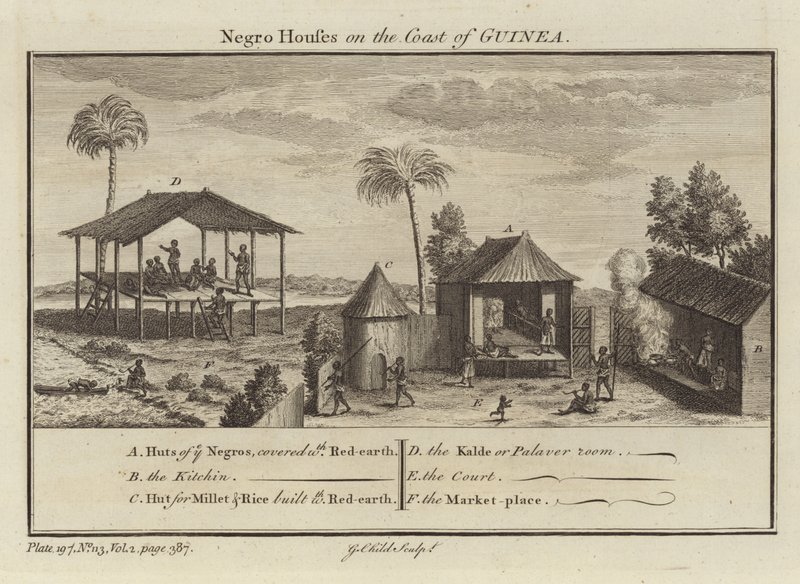 Negro Houſes on the Coast of GUINEA.
D
A
C
B
F
E
A. Huts of yͤ Negros, covered wᵗʰ. Red-earth.
B. the Kitchin.
C. Hut for Millet & Rice built wᵗʰ. Red-earth.
D. the Kalde or Palaver room.
E. the Court.
F. the Market-place.
Plate, 197. Nº. 113, Vol. 2, page 387.
G. Child Sculpᵗ.